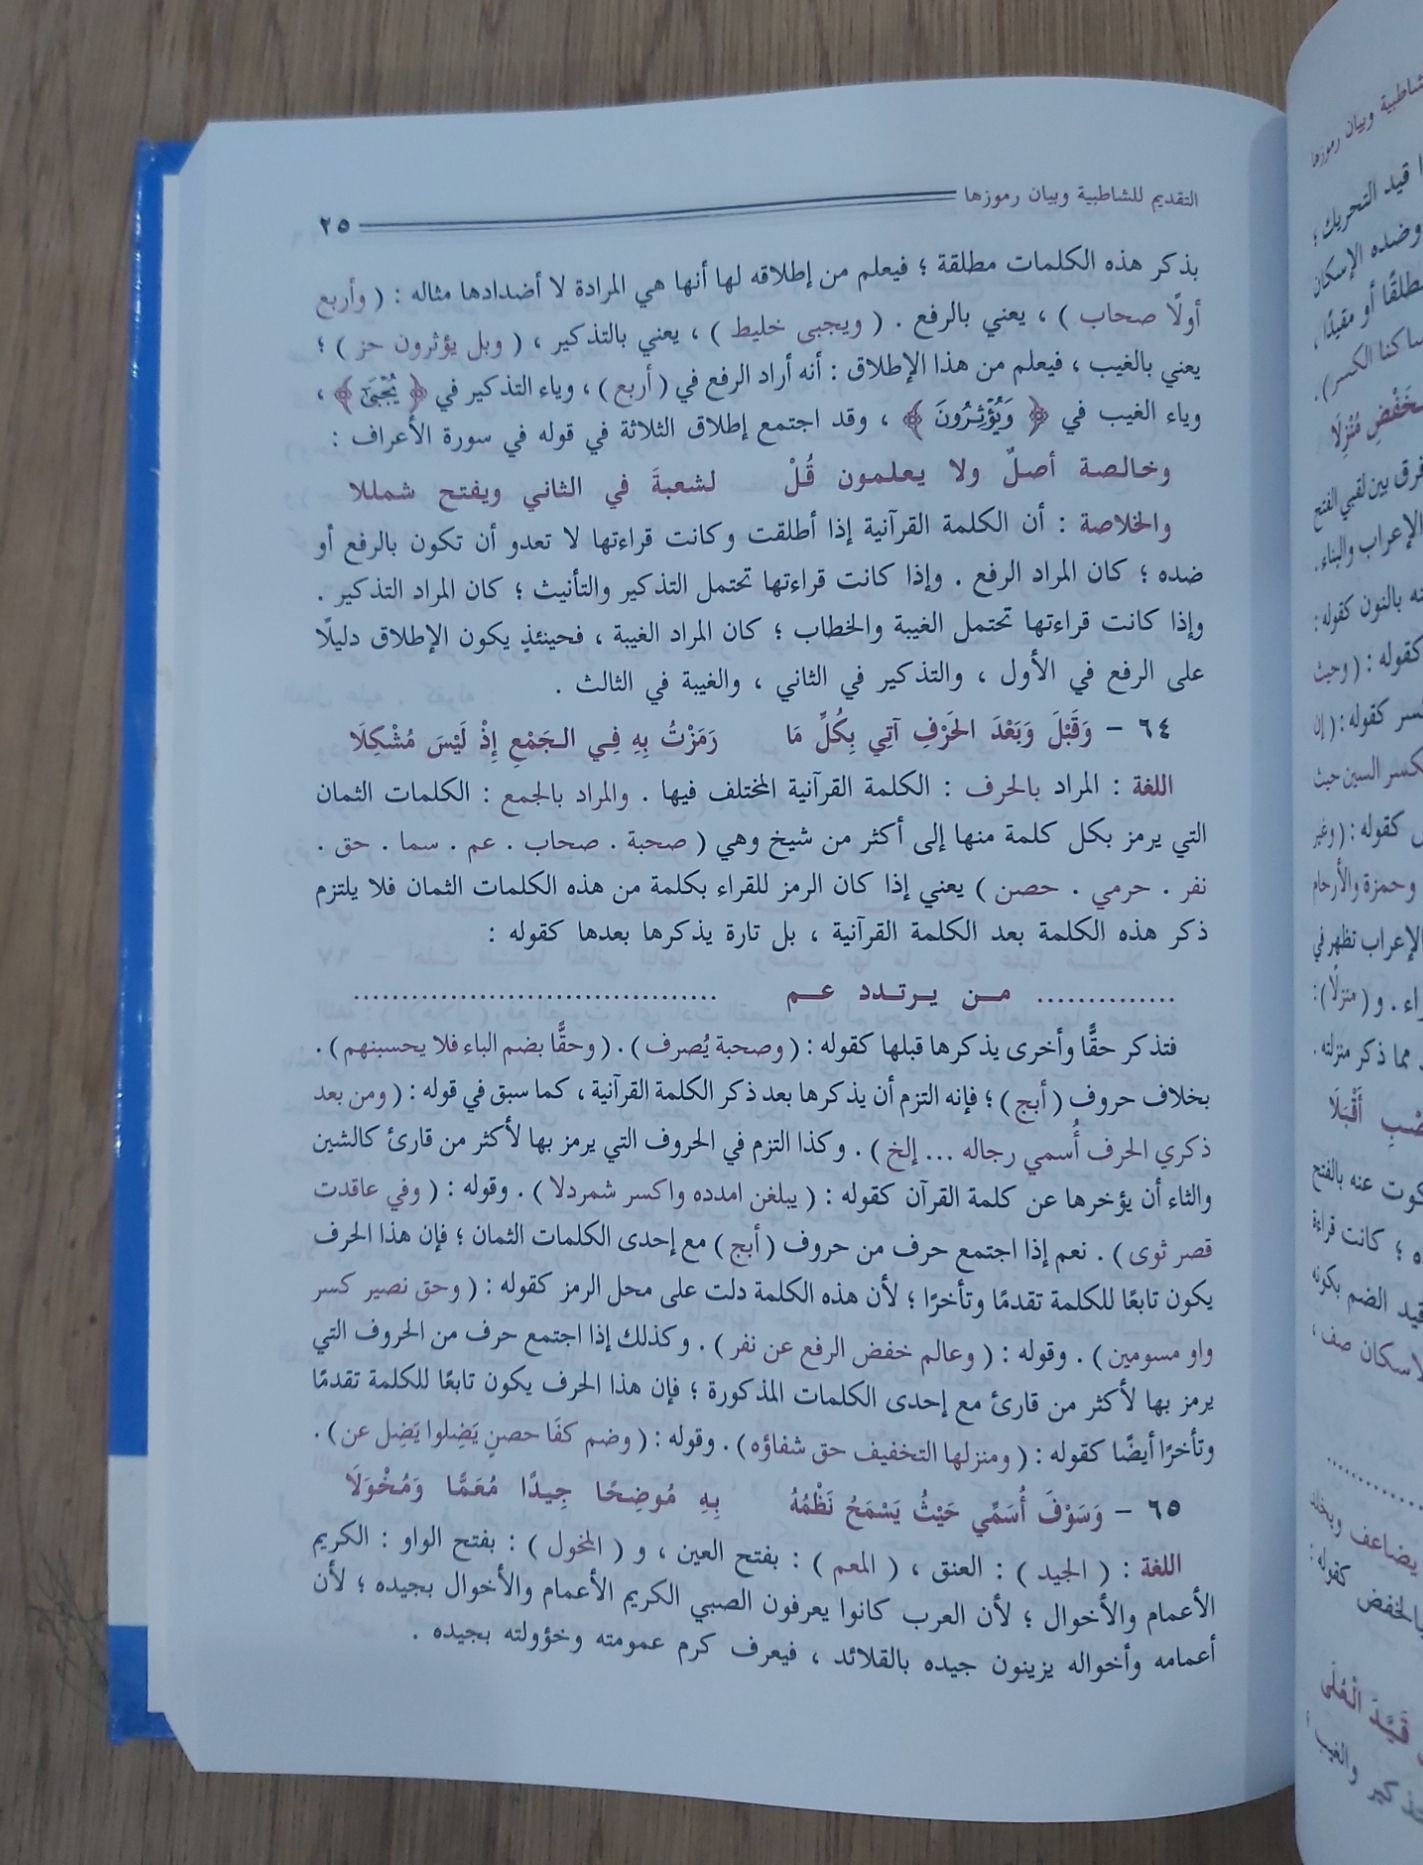 التقديم للشاطبية وبيان رموزها ٢٥
بذكر هذه الكلمات مطلقة ؛ فيعلم من إطلاقه لها أنها هي المرادة لا أضدادها مثاله : ( وأربع
أولًا صحاب ) ، يعني بالرفع . ( ويجبى خليط ) ، يعني بالتذكير ، ( وبل يؤثرون حز ) ؛
يعني بالغيب ، فيعلم من هذا الإطلاق : أنه أراد الرفع في ( أربع ) ، وياء التذكير في ﴿ يُجْبَىٰ ﴾ ،
وياء الغيب في ﴿ وَيُؤْثِرُونَ ﴾ ، وقد اجتمع إطلاق الثلاثة في قوله في سورة الأعراف :
وخالصة أصلٌ ولا يعلمون قُلْ لشعبةَ في الثاني ويفتح شمللا
والخلاصة : أن الكلمة القرآنية إذا أطلقت وكانت قراءتها لا تعدو أن تكون بالرفع أو
ضده ؛ كان المراد الرفع . وإذا كانت قراءتها تحتمل التذكير والتأنيث ؛ كان المراد التذكير .
وإذا كانت قراءتها تحتمل الغيبة والخطاب ؛ كان المراد الغيبة ، فحينئذٍ يكون الإطلاق دليلًا
على الرفع في الأول ، والتذكير في الثاني ، والغيبة في الثالث .
٦٤ - وَقَبْلَ وَبَعْدَ الحَرْفِ آتِي بِكُلِّ مَا رَمَزْتُ بِهِ فِي الجَمْعِ إِذْ لَيْسَ مُشْكِلَا
اللغة : المراد بالحرف : الكلمة القرآنية المختلف فيها . والمراد بالجمع : الكلمات الثمان
التي يرمز بكل كلمة منها إلى أكثر من شيخ وهي ( صحبة . صحاب . عم . سما . حق .
نفر . حرمي . حصن ) يعني إذا كان الرمز للقراء بكلمة من هذه الكلمات الثمان فلا يلتزم
ذكر هذه الكلمة بعد الكلمة القرآنية ، بل تارة يذكرها بعدها كقوله :
.............. من يرتدد عم ......................................
فتذكر حقًّا وأخرى يذكرها قبلها كقوله : ( وصحبة يُصرف ) . ( وحقًّا بضم الباء فلا يحسبنهم ) .
بخلاف حروف ( أبج ) ؛ فإنه التزم أن يذكرها بعد ذكر الكلمة القرآنية ، كما سبق في قوله : ( ومن بعد
ذكري الحرف أُسمي رجاله ... إلخ ) . وكذا التزم في الحروف التي يرمز بها لأكثر من قارئ كالشين
والثاء أن يؤخرها عن كلمة القرآن كقوله : ( يبلغن امدده واكسر شمردلا ) . وقوله : ( وفي عاقدت
قصر ثوى ) . نعم إذا اجتمع حرف من حروف ( أبج ) مع إحدى الكلمات الثمان ؛ فإن هذا الحرف
يكون تابعًا للكلمة تقدمًا وتأخرًا ؛ لأن هذه الكلمة دلت على محل الرمز كقوله : ( وحق نصير كسر
واو مسومين ) . وقوله : ( وعالم خفض الرفع عن نفر ) . وكذلك إذا اجتمع حرف من الحروف التي
يرمز بها لأكثر من قارئ مع إحدى الكلمات المذكورة ؛ فإن هذا الحرف يكون تابعًا للكلمة تقدمًا
وتأخرًا أيضًا كقوله : ( ومنزلها التخفيف حق شفاؤه ) . وقوله : ( وضم كفَا حصنٍ يَضِلوا يَضِل عن ) .
٦٥ - وَسَوْفَ أُسَمِّي حَيْثُ يَسْمَحُ نَظْمُهُ بِهِ مُوضِحًا جِيدًا مُعَمًّا وَمُخْوَلَا
اللغة : ( الجيد ) : العنق ، ( المعم ) : بفتح العين ، و ( المخول ) : بفتح الواو : الكريم
الأعمام والأخوال ؛ لأن العرب كانوا يعرفون الصبي الكريم الأعمام والأخوال بجيده ؛ لأن
أعمامه وأخواله يزينون جيده بالقلائد ، فيعرف كرم عمومته وخؤولته بجيده .